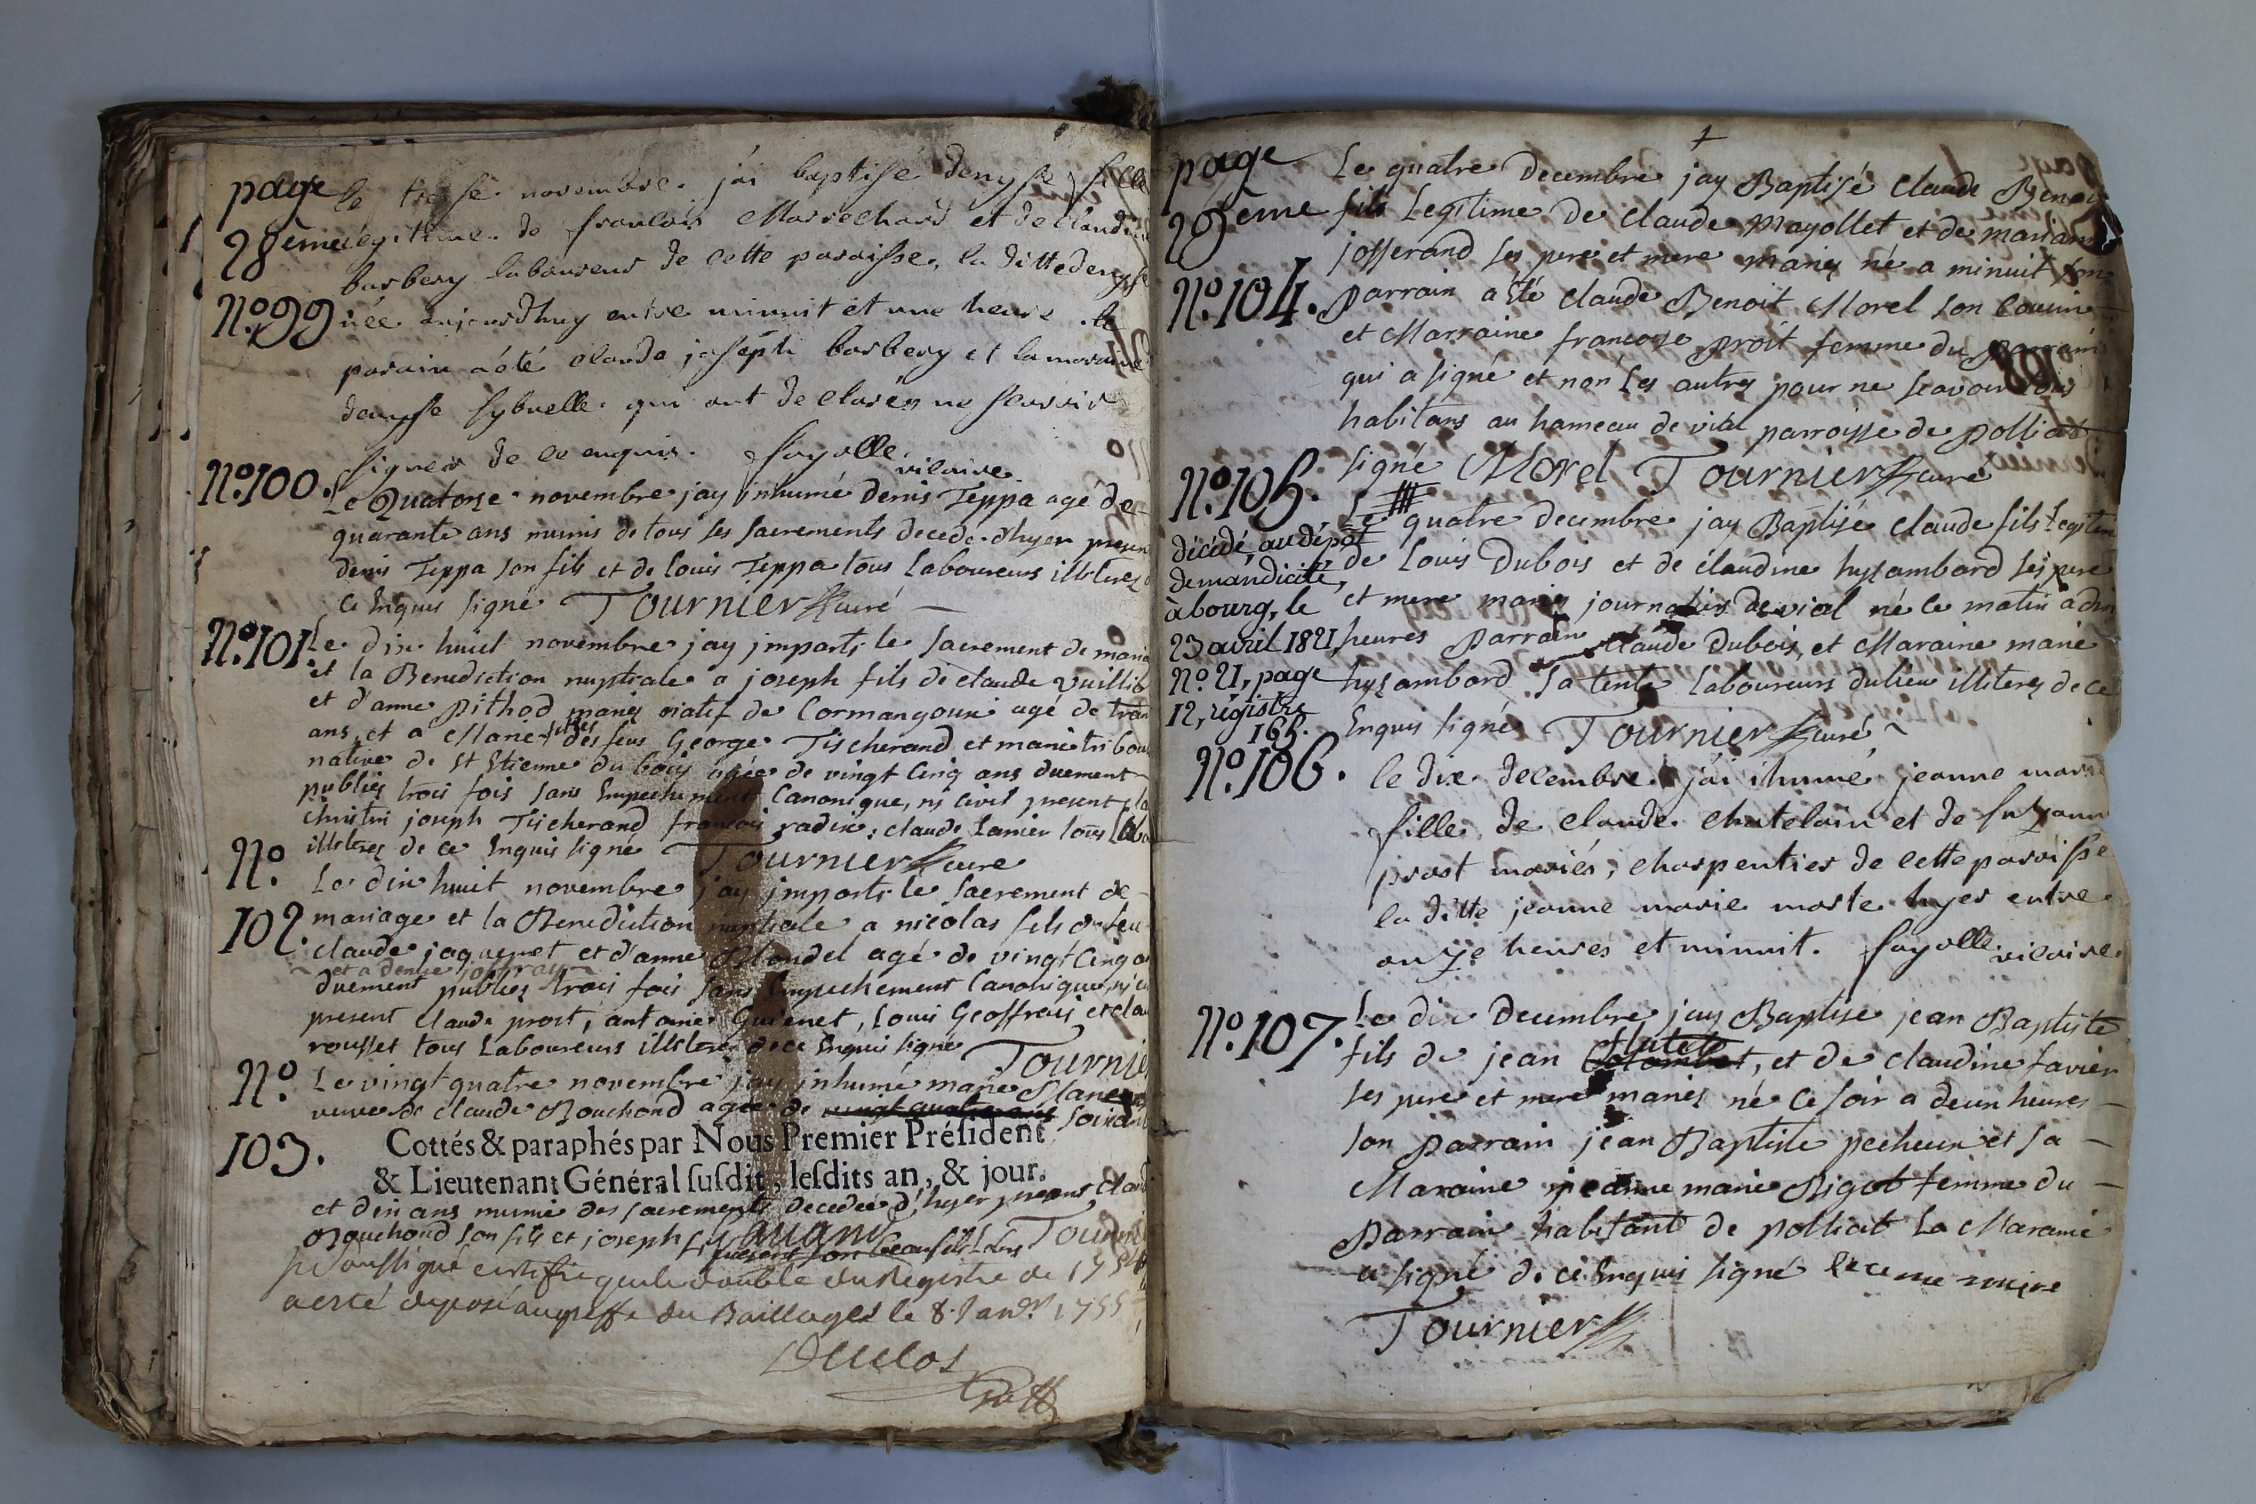 page
28ème
le treise novembre j'ai baptisé denyse fille
legitime de francois Marechard et de Claudine
barbery laboureur de cette paroisse, la ditte denyse
N.º 99
née aujourdhuy entre minuit et une heure. le
parain a été claude joséph barbery et la maraine
denyse sybuelle qui ont declarés ne scavoir
signer de ce enquis. fayolle vicaire
N.º 100.
Le Quatorze novembre jay inhumé denis Teppa agé de
quarante ans munis de tous ses sacrements decedé d'hyer present
denis Teppa son fils et de louis Teppa tous Laboureurs illiteres
ce Enquis signé Tournier curé
N.º 101.
Le dix huit novembre jay imparti le sacrement de
et la Benediction nuptiale a joseph fils de claude
et d'anne pithod mariés natif de Cormangoux agé de
ans, et a Marie fille des feus George Tischerand et marie
native de St Etienne du bois agée de vingt cinq ans duement
publiés trois fois sans Empechement Canonique, ni civil present
christin joseph Tischerand francois radix, claude Lanier tous
illiteres de ce Enquis signé Tournier curé
N.º
102.
Le dix huit novembre j'ay imparti le sacrement de
mariage et la Benediction nuptiale a nicolas fils de feu
claude jaquemet et d'anne Blondel agé de vingt Cinq
et a denise joffray
duement publiés trois fois sans Empechement Canonique, ni
present claude prost, antoine Guienet, Louis Geoffrais et
rousset tous Laboureurs illiteres de ce Enquis signé Tournier
N.º
103.
Le vingt quatre novembre jay inhumé marie
veuve de claude Bouchond agée de vingt quatre ans
Cottés & paraphés par Nous Premier Préſident
& Lieutenant Général ſuſdit, leſdits an, & jour.
et dix ans munie des sacrements decedée d'hyer present
Bouchond son fils et joseph Tournier
je soussigné certifie que le double du Registre de 1754
a esté deposé au greffe du Baillage le 8 Janer 1755
Duclos
page
29ème
Le quatre decembre jay Baptisé Claude Benoit
fils Legitime de Claude Mayollet et de mariane
josserand ses pere et mere mariés né a minuit son
N.º 104.
Parrain a été Claude Benoit Morel son Cousin
et Marraine francoise proit femme du parrain
qui a signé et non les autres pour ne scavoir tous
habitans au hameau de vial parroisse de polliat
signé Morel Tournier curé
N.º 105.
Le quatre decembre jay Baptisé Claude fils Legitime
de Louis Dubois et de claudine hyzambard ses pere
et mere mariés journaliers de vial né ce matin a dix
heures Parrain claude Dubois, et Maraine marie
hyzambard sa tente Laboureurs du lieu illiteres de ce
Enquis signé Tournier curé
décédé, au dépot
de mandicité,
à bourg, le
23 avril 1821,
N.º 21, page
12, régistre
165.
N.º 106.
le dix decembre j'ai ihumé jeanne marie
fille de claude chatelain et de suzanne
prost mariés, charpentier de cette paroisse
la ditte jeanne marie morte hyer entre
onze heures et minuit. fayolle vicaire.
N.º 107.
Le dix Decembre jay Baptisé jean Baptiste
fils de jean Colombet, et de claudine favier
ses pere et mere mariés né ce soir a deux heures
son parrain jean Baptiste pecheux et sa
Maraine jeanne marie Bigot femme du
Parrain habitant de polliat La Maraine
a signé de ce Enquis signé
Tournier